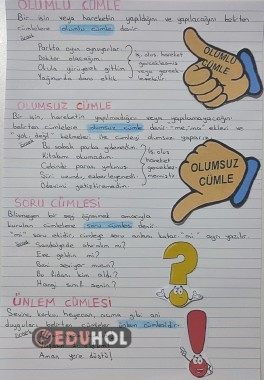 OLUMLU CÜMLE
Bir işin veya hareketin yapıldığını ve yapılacağını belirten
cümlelere olumlu cümle denir.
Parkta oyun oynuyorlar.
Doktor olacağım.
Okula yürüyerek gittim.
Yağmurda dans ettik.
İş, oluş
hareket
gerçekleşmiş
veya gerçek-
OLUMLU
CÜMLE
OLUMSUZ CÜMLE
Bir işin, hareketin yapılmadığını veya yapılamayacağını
belirten cümlelere olumsuz cümle denir. "me, ma" ekleri ve
"yok, değil" kelimeleri ile cümleyi olumsuz yaparız.
Bu sokak parka gidemedin.
Kitabım okumadım.
Cebinde parası yoktu.
Ödevimi yetiştiremedim.
İş, oluş
hareket
OLUMSUZ
CÜMLE
SORU CÜMLESİ
Bilinmeyen bir şeyi öğrenmek amacıyla
kurulan cümlelere soru cümlesi denir.
"mi" soru ekidir. cümleye soru anlamı katar "mi" ayrı yazılır.
Eve geldin mi?
Beni seviyor musun?
Bu fidanı kim aldı?
Hangi sınıf senin?
ÜNLEM CÜMLESİ
Sevinç, korku, heyecan, acıma gibi ani
duyguları belirten cümleler ünlem cümlesidir.
EDUHOL
Aman yere düştü!